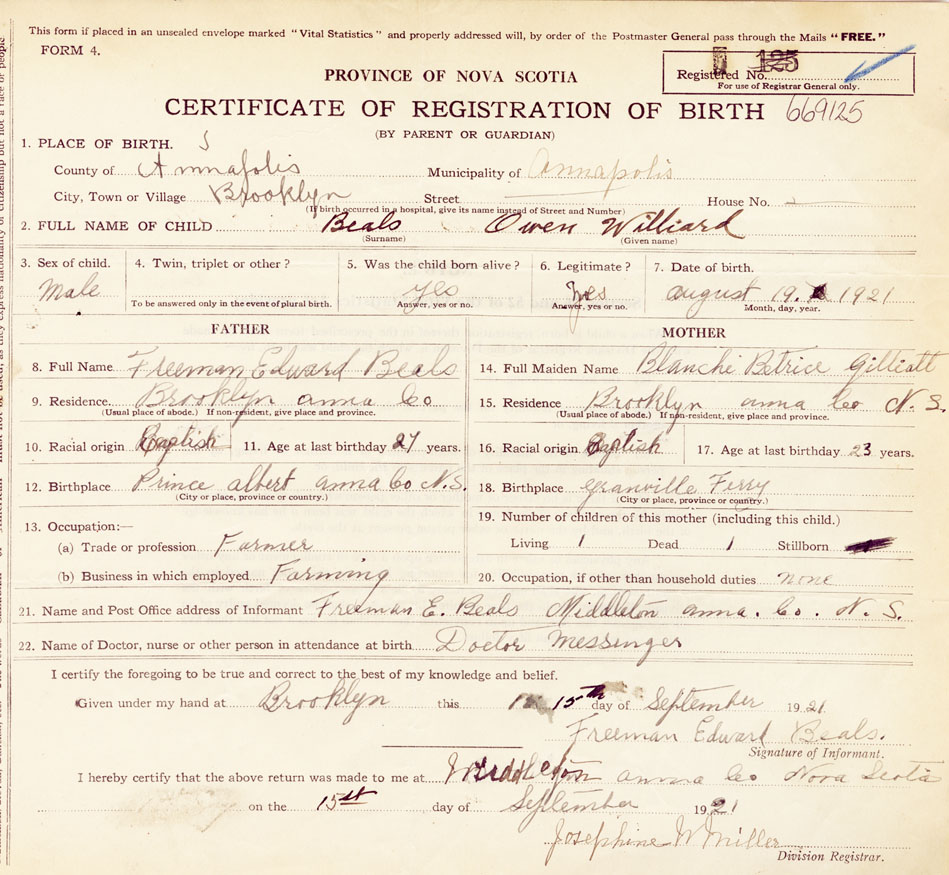 This form if placed in an unsealed envelope marked "Vital Statistics" and properly addressed will, by order of the Postmaster General pass through the Mails "FREE."
FORM 4.
PROVINCE OF NOVA SCOTIA
Registered No. 125
For use of Registrar General only.
CERTIFICATE OF REGISTRATION OF BIRTH 669125
(BY PARENT OR GUARDIAN)
1. PLACE OF BIRTH.
County of Annapolis Municipality of Annapolis
City, Town or Village Brooklyn Street House No.
(If birth occurred in a hospital, give its name instead of Street and Number)
2. FULL NAME OF CHILD Beals Owen Williard
(Surname) (Given name)
3. Sex of child. 4. Twin, triplet or other? 5. Was the child born alive? 6. Legitimate? 7. Date of birth.
Male yes Yes august 19. 1921
To be answered only in the event of plural birth. Answer, yes or no. Answer, yes or no. Month, day, year.
FATHER MOTHER
8. Full Name Freeman Edward Beals
14. Full Maiden Name Blanche Betrice Gilliatt
9. Residence. Brooklyn anna Co
(Usual place of abode.) If non-resident, give place and province.
15. Residence. Brooklyn anna Co N.S.
(Usual place of abode.) If non-resident, give place and province.
10. Racial origin Baptish 11. Age at last birthday 27 years.
16. Racial origin Baptish 17. Age at last birthday 23 years.
12. Birthplace Prince albert anna Co N.S.
(City or place, province or country.)
18. Birthplace Granville Ferry
(City or place, province or country.)
13. Occupation:—
19. Number of children of this mother (including this child.)
(a) Trade or profession Farmer
Living 1 Dead 1 Stillborn
(b) Business in which employed Farming
20. Occupation, if other than household duties none
21. Name and Post Office address of Informant Freeman E. Beals Middleton anna. Co. N. S.
22. Name of Doctor, nurse or other person in attendance at birth Doctor Messenger
I certify the foregoing to be true and correct to the best of my knowledge and belief.
Given under my hand at Brooklyn this 15th day of September 1921.
Freeman Edward Beals.
Signature of Informant.
I hereby certify that the above return was made to me at Middleton anna Co Nova Scotia
on the 15st day of September 1921
Josephine W Miller
Division Registrar.